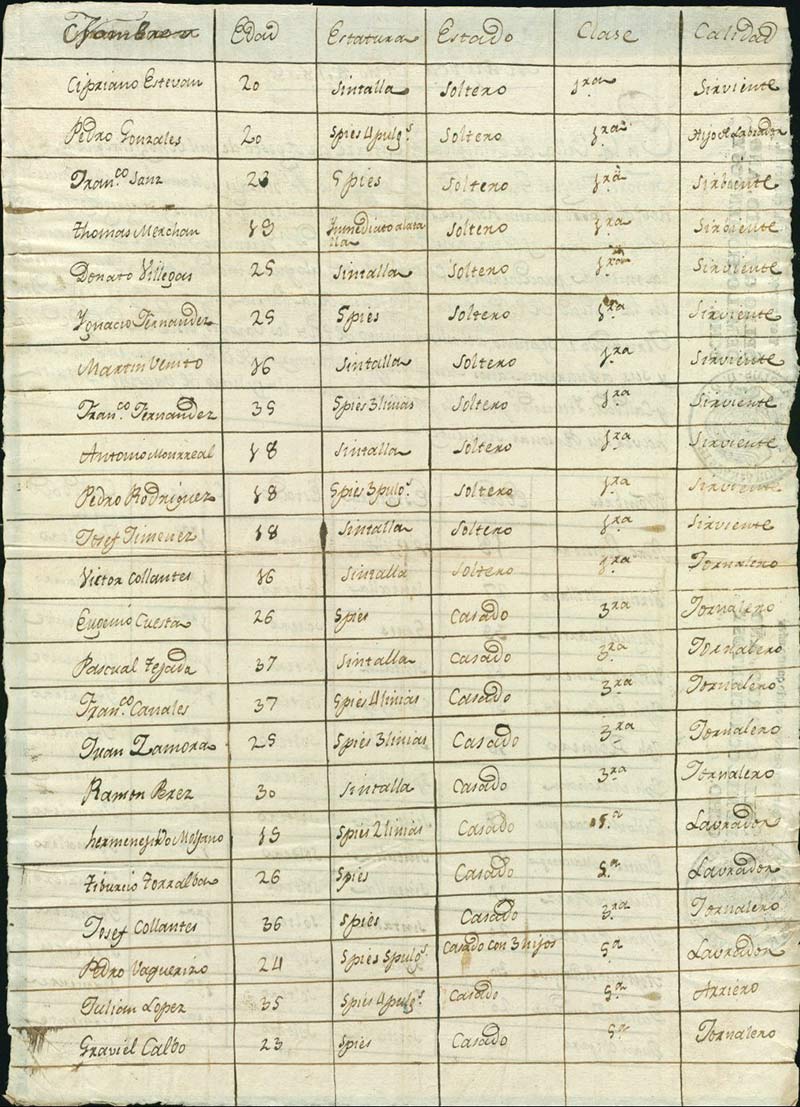 Nombres Edad Estatura Estado Clase Calidad
Cipriano Estevan 20 sintalla Soltero 1ra Sirviente
Pedro Gonzales 20 5pies 4 pulgs. Soltero 1ra Hijo d Labrador
Franco. Sanz 23 5pies Soltero 1ra Sirviente
thomas Merchan 19 Ynmediato alata
lla Soltero 1ra Sirviente
Donato Villegas 25 sintalla Soltero 1ra Sirviente
Ygnacio Fernandez 25 5pies Soltero 1ra Sirviente
Martin Venito 16 sintalla Soltero 1ra Sirviente
Franco. Fernandez 35 5pies 3 linias Soltero 1ra Sirviente
Antonio Monrreal 18 sintalla Soltero 1ra Sirviente
Pedro Rodriguez 18 5pies 3 pulgs. Soltero 1ra Sirviente
Josef Jimenez 18 sintalla Soltero 1ra Sirviente
Victor Collantes 16 sintalla Soltero 1ra Jornalero
Eugenio Cuesta 26 5pies Casado 3ra Jornalero
Pascual Tejada 37 sintalla Casado 3ra Jornalero
Franco. Canales 37 5pies 4 linias Casado 3ra Jornalero
Juan Zamora 25 5pies 3 linias Casado 3ra Jornalero
Ramon Perez 30 sintalla Casado 3ra Jornalero
hermenejildo 19 5pies 2 linias Casado 5a Lavrador
tiburcio torralba 26 5pies Casado 5a Lavrador
Josef Collantes 36 5pies Casado 3ra Jornalero
Pedro Vaquerizo 24 5pies 5 pulgs. Casado con 3 hijos 5a Lavrador
Julian Lopez 35 5pies 4 pulgs. Casado 5a Arriero
Graviel Calbo 23 5pies Casado 5a Jornalero